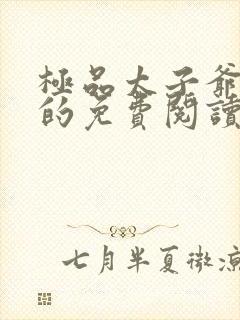 極品太子爺
的免費閱讀
七月半夏微涼